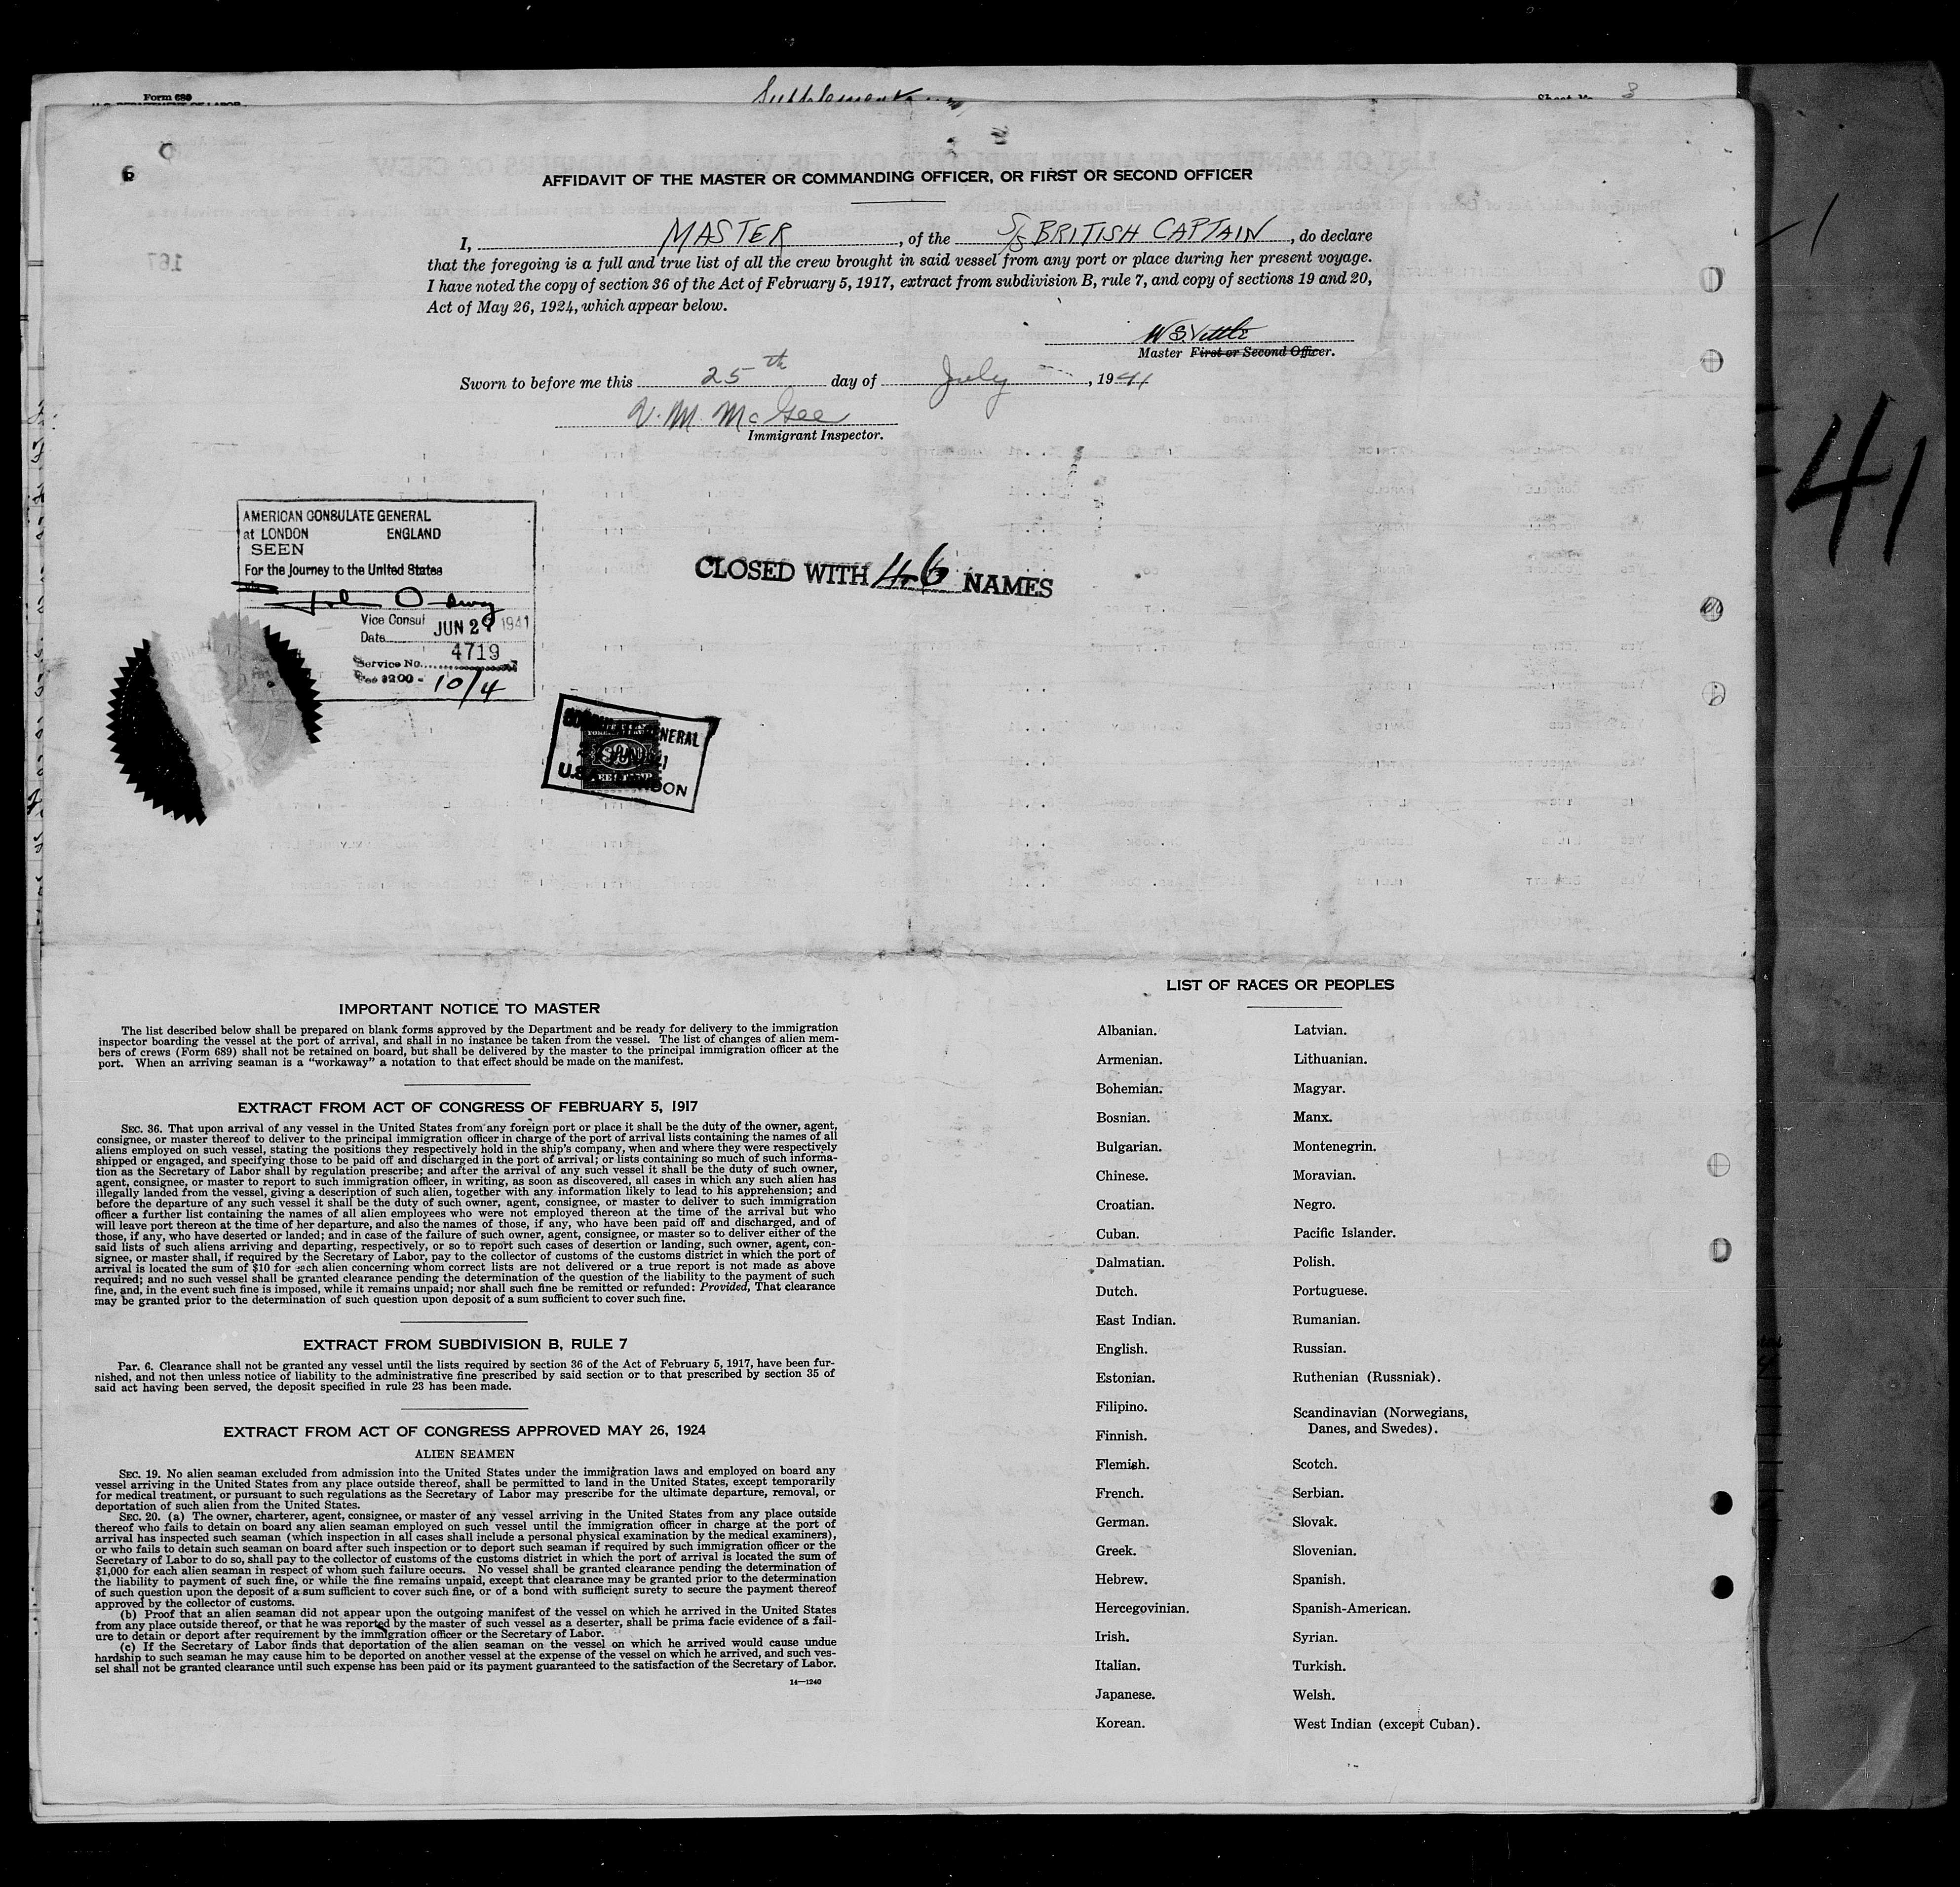 Form 689
Supplementary
3
AFFIDAVIT OF THE MASTER OR COMMANDING OFFICER, OR FIRST OR SECOND OFFICER
I, MASTER, of the S/S BRITISH CAPTAIN, do declare
that the foregoing is a full and true list of all the crew brought in said vessel from any port or place during her present voyage.
I have noted the copy of section 36 of the Act of February 5, 1917, extract from subdivision B, rule 7, and copy of sections 19 and 20,
Act of May 26, 1924, which appear below.
Master First or Second Officer.
Sworn to before me this 25th day of July, 1941
V. M. McGee
Immigrant Inspector.
41
AMERICAN CONSULATE GENERAL
at LONDON ENGLAND
SEEN
For the Journey to the United States
Vice Consul
Date JUN 27 1941
Service No. 4719
Fee $2.00 = 10/4
CLOSED WITH 46 NAMES
IMPORTANT NOTICE TO MASTER
The list described below shall be prepared on blank forms approved by the Department and be ready for delivery to the immigration
inspector boarding the vessel at the port of arrival, and shall in no instance be taken from the vessel. The list of changes of alien mem-
bers of crews (Form 689) shall not be retained on board, but shall be delivered by the master to the principal immigration officer at the
port. When an arriving seaman is a "workaway" a notation to that effect should be made on the manifest.
EXTRACT FROM ACT OF CONGRESS OF FEBRUARY 5, 1917
SEC. 36. That upon arrival of any vessel in the United States from any foreign port or place it shall be the duty of the owner, agent,
consignee, or master thereof to deliver to the principal immigration officer in charge of the port of arrival lists containing the names of all
aliens employed on such vessel, stating the positions they respectively hold in the ship's company, when and where they were respectively
shipped or engaged, and specifying those to be paid off and discharged in the port of arrival; or lists containing so much of such informa-
tion as the Secretary of Labor shall by regulation prescribe; and after the arrival of any such vessel it shall be the duty of such owner,
agent, consignee, or master to report to such immigration officer, in writing, as soon as discovered, all cases in which any such alien has
illegally landed from the vessel, giving a description of such alien, together with any information likely to lead to his apprehension; and
before the departure of any such vessel it shall be the duty of such owner, agent, consignee, or master to deliver to such immigration
officer a further list containing the names of all alien employees who were not employed thereon at the time of the arrival but who
will leave port thereon at the time of her departure, and also the names of those, if any, who have been paid off and discharged, and of
those, if any, who have deserted or landed; and in case of the failure of such owner, agent, consignee, or master so to deliver either of the
said lists of such aliens arriving and departing, respectively, or so to report such cases of desertion or landing, such owner, agent, con-
signee, or master shall, if required by the Secretary of Labor, pay to the collector of customs of the customs district in which the port of
arrival is located the sum of $10 for each alien concerning whom correct lists are not delivered or a true report is not made as above
required; and no such vessel shall be granted clearance pending the determination of the question of the liability to the payment of such
fine, and, in the event such fine is imposed, while it remains unpaid; nor shall such fine be remitted or refunded: Provided, That clearance
may be granted prior to the determination of such question upon deposit of a sum sufficient to cover such fine.
EXTRACT FROM SUBDIVISION B, RULE 7
Par. 6. Clearance shall not be granted any vessel until the lists required by section 36 of the Act of February 5, 1917, have been fur-
nished, and not then unless notice of liability to the administrative fine prescribed by said section or to that prescribed by section 35 of
said act having been served, the deposit specified in rule 23 has been made.
EXTRACT FROM ACT OF CONGRESS APPROVED MAY 26, 1924
ALIEN SEAMEN
SEC. 19. No alien seaman excluded from admission into the United States under the immigration laws and employed on board any
vessel arriving in the United States from any place outside thereof, shall be permitted to land in the United States, except temporarily
for medical treatment, or pursuant to such regulations as the Secretary of Labor may prescribe for the ultimate departure, removal, or
deportation of such alien from the United States.
SEC. 20. (a) The owner, charterer, agent, consignee, or master of any vessel arriving in the United States from any place outside
thereof who fails to detain on board any alien seaman employed on such vessel until the immigration officer in charge at the port of
arrival has inspected such seaman (which inspection in all cases shall include a personal physical examination by the medical examiners),
or who fails to detain such seaman on board after such inspection or to deport such seaman if required by such immigration officer or the
Secretary of Labor to do so, shall pay to the collector of customs of the customs district in which the port of arrival is located the sum of
$1,000 for each alien seaman in respect of whom such failure occurs. No vessel shall be granted clearance pending the determination of
the liability to payment of such fine, or while the fine remains unpaid, except that clearance may be granted prior to the determination
of such question upon the deposit of a sum sufficient to cover such fine, or of a bond with sufficient surety to secure the payment thereof
approved by the collector of customs.
(b) Proof that an alien seaman did not appear upon the outgoing manifest of the vessel on which he arrived in the United States
from any place outside thereof, or that he was reported by the master of such vessel as a deserter, shall be prima facie evidence of a fail-
ure to detain or deport after requirement by the immigration officer or the Secretary of Labor.
(c) If the Secretary of Labor finds that deportation of the alien seaman on the vessel on which he arrived would cause undue
hardship to such seaman he may cause him to be deported on another vessel at the expense of the vessel on which he arrived, and such ves-
sel shall not be granted clearance until such expense has been paid or its payment guaranteed to the satisfaction of the Secretary of Labor.
14—1240
LIST OF RACES OR PEOPLES
Albanian.
Armenian.
Bohemian.
Bosnian.
Bulgarian.
Chinese.
Croatian.
Cuban.
Dalmatian.
Dutch.
East Indian.
English.
Estonian.
Filipino.
Finnish.
Flemish.
French.
German.
Greek.
Hebrew.
Hercegovinian.
Irish.
Italian.
Japanese.
Korean.
Latvian.
Lithuanian.
Magyar.
Manx.
Montenegrin.
Moravian.
Negro.
Pacific Islander.
Polish.
Portuguese.
Rumanian.
Russian.
Ruthenian (Russniak).
Scandinavian (Norwegians,
Danes, and Swedes).
Scotch.
Serbian.
Slovak.
Slovenian.
Spanish.
Spanish-American.
Syrian.
Turkish.
Welsh.
West Indian (except Cuban).